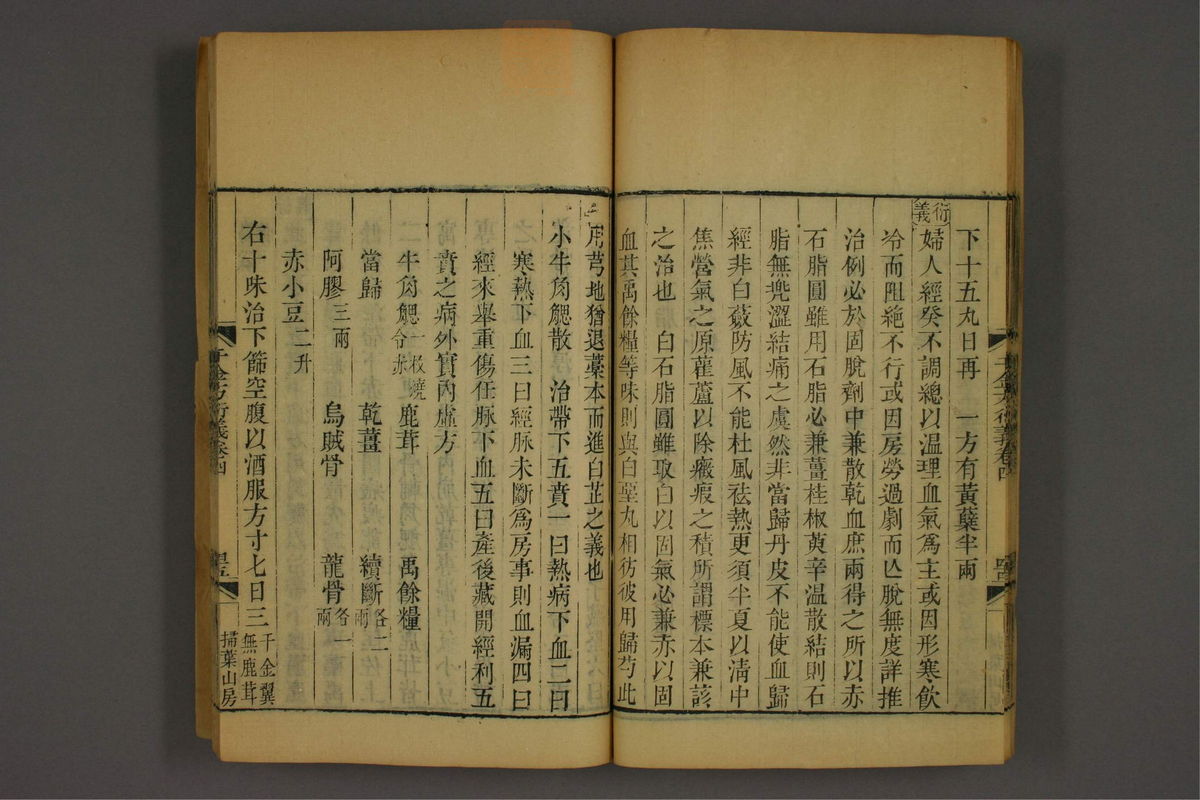 下十五丸日再　一方有黃蘗半兩
衍義
婦人經癸不調總以温理血氣爲主或因形寒飲
冷而阻絶不行或因房勞過劇而亡脫無度詳推
治例必於固脫劑中兼散乾血庶兩得之所以赤
石脂圓雖用石脂必兼薑桂椒萸辛温散結則石
脂無兠澀結痛之虞然非當歸丹皮不能使血歸
經非白蘞防風不能杜風祛熱更須半夏以淸中
焦營氣之原雚蘆以除癥瘕之積所謂標本兼該
之治也　白石脂圓雖取白以固氣必兼赤以固
血其禹餘糧等味則與白堊丸相彷彼用歸芍此
用芎地猶退藁本而進白芷之義也
小牛角䚡散　治帶下五賁一曰熱病下血二曰
寒熱下血三曰經脉未斷爲房事則血漏四曰
經來舉重傷任脉下血五曰產後藏開經利五
賁之病外實內虛方
牛角䚡一枚燒令赤　鹿茸　禹餘糧
當歸　乾薑　續斷各二兩
阿膠三兩　烏賊骨　龍骨各一兩
赤小豆二升
右十味治下篩空腹以酒服方寸匕日三千金翼無鹿茸
千金方衍義卷四
掃葉山房